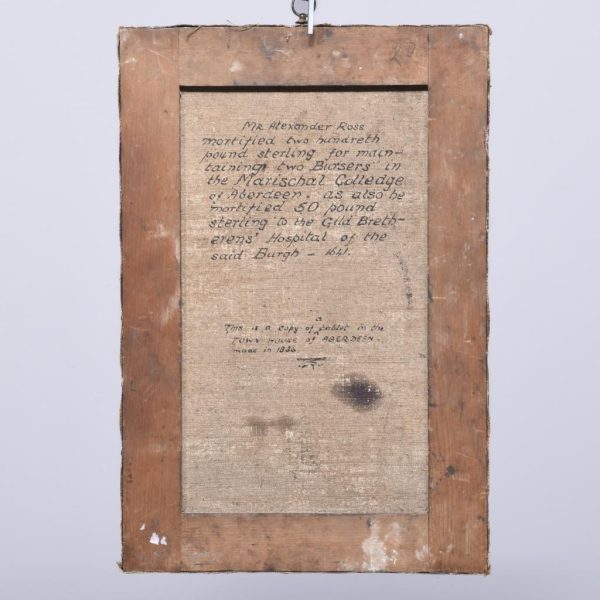 20
Mr Alexander Ross
mortified two hundreth
pound sterling for main-
taining two Bursers in
the Marischal Colledge
of Aberdeen. as also he
mortified 50 pound
sterling to the Gild Breth-
erens' Hospital of the
said Burgh – 1641.
This is a copy of a tablet in the
Town House of ABERDEEN -
made in 1846.